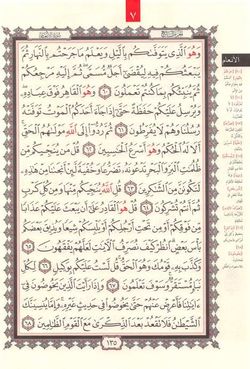 ٧
الأنعام
وَهُوَ ٱلَّذِى يَتَوَفَّىٰكُم بِٱلَّيْلِ وَيَعْلَمُ مَا جَرَحْتُم بِٱلنَّهَارِ ثُمَّ
يَبْعَثُكُمْ فِيهِ لِيُقْضَىٰٓ أَجَلٌ مُّسَمًّى ثُمَّ إِلَيْهِ مَرْجِعُكُمْ
ثُمَّ يُنَبِّئُكُم بِمَا كُنتُمْ تَعْمَلُونَ ٦٠ وَهُوَ ٱلْقَاهِرُ فَوْقَ عِبَادِهِۦ
وَيُرْسِلُ عَلَيْكُمْ حَفَظَةً حَتَّىٰٓ إِذَا جَآءَ أَحَدَكُمُ ٱلْمَوْتُ تَوَفَّتْهُ
رُسُلُنَا وَهُمْ لَا يُفَرِّطُونَ ٦١ ثُمَّ رُدُّوٓا۟ إِلَى ٱللَّهِ مَوْلَىٰهُمُ ٱلْحَقِّ
أَلَا لَهُ ٱلْحُكْمُ وَهُوَ أَسْرَعُ ٱلْحَٰسِبِينَ ٦٢ قُلْ مَن يُنَجِّيكُم مِّن
ظُلُمَٰتِ ٱلْبَرِّ وَٱلْبَحْرِ تَدْعُونَهُۥ تَضَرُّعًا وَخُفْيَةً لَّئِنْ أَنجَىٰنَا مِنْ هَٰذِهِۦ
لَنَكُونَنَّ مِنَ ٱلشَّٰكِرِينَ ٦٣ قُلِ ٱللَّهُ يُنَجِّيكُم مِّنْهَا وَمِن كُلِّ كَرْبٍ
ثُمَّ أَنتُمْ تُشْرِكُونَ ٦٤ قُلْ هُوَ ٱلْقَادِرُ عَلَىٰٓ أَن يَبْعَثَ عَلَيْكُمْ عَذَابًا
مِّن فَوْقِكُمْ أَوْ مِن تَحْتِ أَرْجُلِكُمْ أَوْ يَلْبِسَكُمْ شِيَعًا وَيُذِيقَ بَعْضَكُم
بَأْسَ بَعْضٍ ٱنظُرْ كَيْفَ نُصَرِّفُ ٱلْءَايَٰتِ لَعَلَّهُمْ يَفْقَهُونَ ٦٥
وَكَذَّبَ بِهِۦ قَوْمُكَ وَهُوَ ٱلْحَقُّ قُل لَّسْتُ عَلَيْكُم بِوَكِيلٍ ٦٦ لِّكُلِّ
نَبَإٍ مُّسْتَقَرٌّ وَسَوْفَ تَعْلَمُونَ ٦٧ وَإِذَا رَأَيْتَ ٱلَّذِينَ يَخُوضُونَ فِىٓ
ءَايَٰتِنَا فَأَعْرِضْ عَنْهُمْ حَتَّىٰ يَخُوضُوا۟ فِى حَدِيثٍ غَيْرِهِۦ وَإِمَّا يُنسِيَنَّكَ
ٱلشَّيْطَٰنُ فَلَا تَقْعُدْ بَعْدَ ٱلذِّكْرَىٰ مَعَ ٱلْقَوْمِ ٱلظَّٰلِمِينَ ٦٨
١٣٥